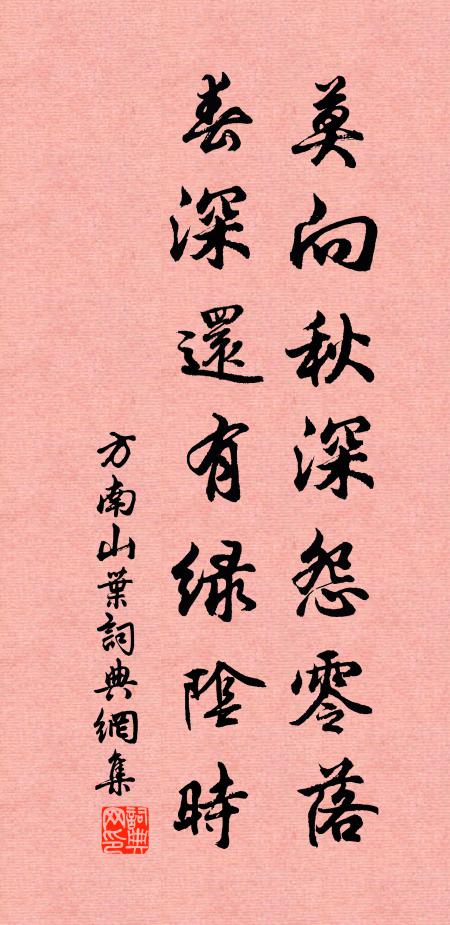 莫向秋深怨零落
春深還有綠陰時
方南山葉詞典網集
詞典
网印